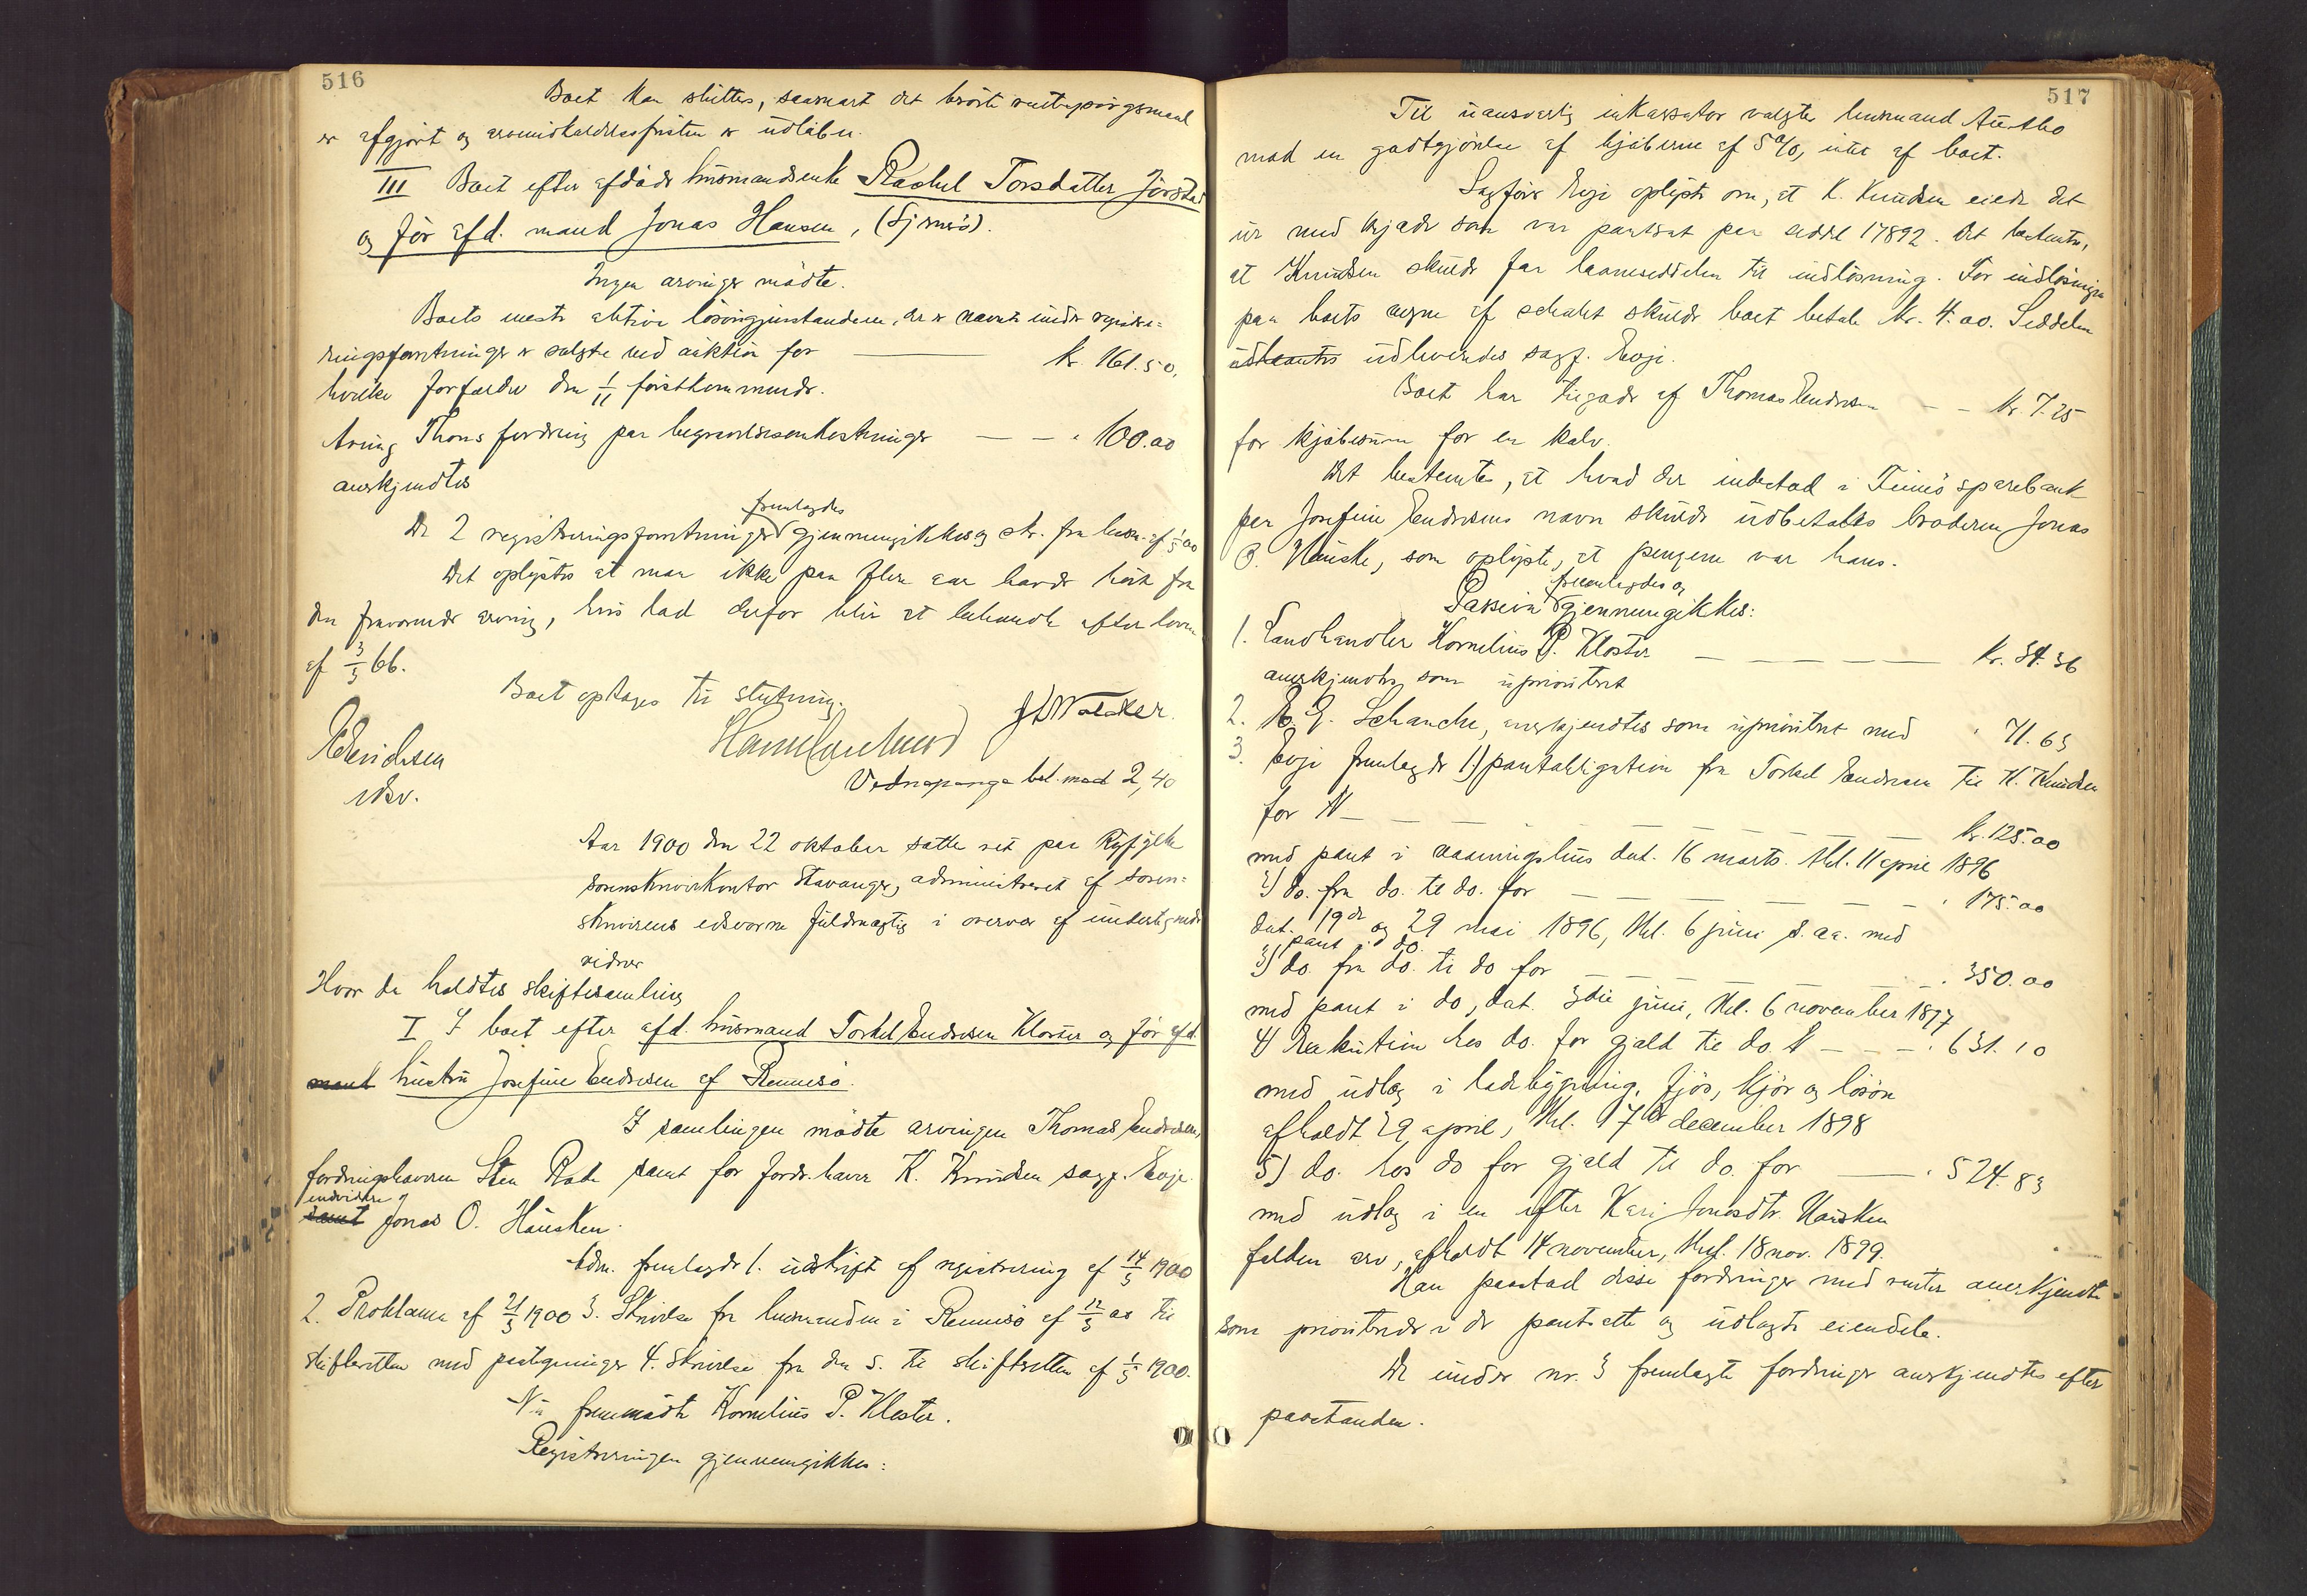 516
Boet kan sluttes, saasnart det berørte
er afgjort og er udløbet.
III Boet efter afdøde husmandsenke Rachel Torsdatter Jörstad
og før afd. mand Jonas Hansen, (Fjernø).
Ingen arvinger mødte.
Boets eneste aktiva løsøregjenstandene, der er nævnt under registre=
ringsforretninger er solgte ved auktion for — kr. 161.50,
hvilke forfalder den 1/11 førstkommende.
Arving Thons fordring paa begravelsesomkostninger — — " 100.00
anerkjendtes
fremlagdes
De 2 registreringsforretninger gjennemgikkes og skr. fra lensm. af
Det oplystes at man ikke paa flere aar havde hørt fra
den fraværende arving, hvis lod derfor blir at behandle efter loven
af 3/3 66.
Boet optages til slutning.
Vidnepenge bet. med 2,40
Aar 1900 den 22 oktober sattes ret paa Ryfylke
sorenskriverkontor Stavanger, administreret af soren=
skriverens edsvorne fuldmægtig i overvær af undertegnede
vidner
Hvor da holdtes skiftesamling
I I boet efter afd. husmand Torkel Endresen Kloster og før afd.
mand hustru Josefine Endresen af Rennesø.
I samlingen mødte arvingen Thomas Endresen,
fordringshaveren Sten Rode samt for fordr.haver K. Knudsen sagf. Eeoje.
endvidere
samt Jonas O. Hausken.
Adm. fremlagde 1. udskrift af registrering af 14/5 1900
2. Proklama af 21/5 1900 3. Skrivelse fra lensmanden i Rennesø af 12/5 00 til
skifteretten med paategninger 4. Skrivelse fra den s. til skifteretten af 1/5 1900.
Nu fremmødte Kornelius P. Kloster.
Registreringen gjennemgikkes:
517
Til uansvarlig inkassator valgtes lensmand
mod en godtgjørelse af kjøberne af 5 %, intet af boet.
Sagfører oplyste om, at K. Knudsen eiede det
ur med kjæde som var pantsat paa seddel 17892. Det bestemtes,
at Knudsen skulde faa laaneseddelen til indløsning. For indløsningen
paa boets vegne af skulde boet betale kr. 4.00. Seddelen
udleveredes sagf.
Boet har tilgode af Thomas Endresen — — kr. 7.25
for kjøbesum for en kalv.
Det bestemtes, at hvad der indestod i Finnø sparebank
paa Josefine Endresens navn skulde udbetales broderen Jonas
O. Hauske, som oplyste, at pengene var hans.
fremlagdes og
Passiva gjennemgikkes:
1. Landhandler Kornelius P. Kloster — — — — — kr. 34.36
anerkjendtes som uprioritert
2. E. G. Schanche, anerkjendtes som uprioritert med " 71.63
3. fremlagde 1) pantobligation fra Torkel Endresen til K. Knudsen
for — — — — — — — — kr. 125.00
med pant i vaaningshus dat. 16 marts. thl. 11 april 1896
2) do. fra do. til do. for — — — — — " 175.00
dat. 19de og 29 mai 1896, thl. 6 juni s. aa. med
pant i do.
3) do. fra do. til do for — — — — " 350.00
med pant i do, dat. 3die juni, thl. 6 november 1897
4) Exekution hos do. for gjæld til do. — — — " 631.10
med udlæg i ladebygning, fjøs, kjør og løsøre
afholdt 29 april, thl. 17de december 1898
5) do. hos do for gjæld til do. for — " 524.83
med udlæg i en efter Kari Jonasdtr. Hausken
falden arv, afholdt 14 november, thl. 18 nov. 1899.
Han paastod disse fordringer med renter anerkjendte
som prioriterede i de pantsatte og udlagte eiendele.
De under nr. 3 fremlagte fordringer anerkjendtes efter
paastanden.